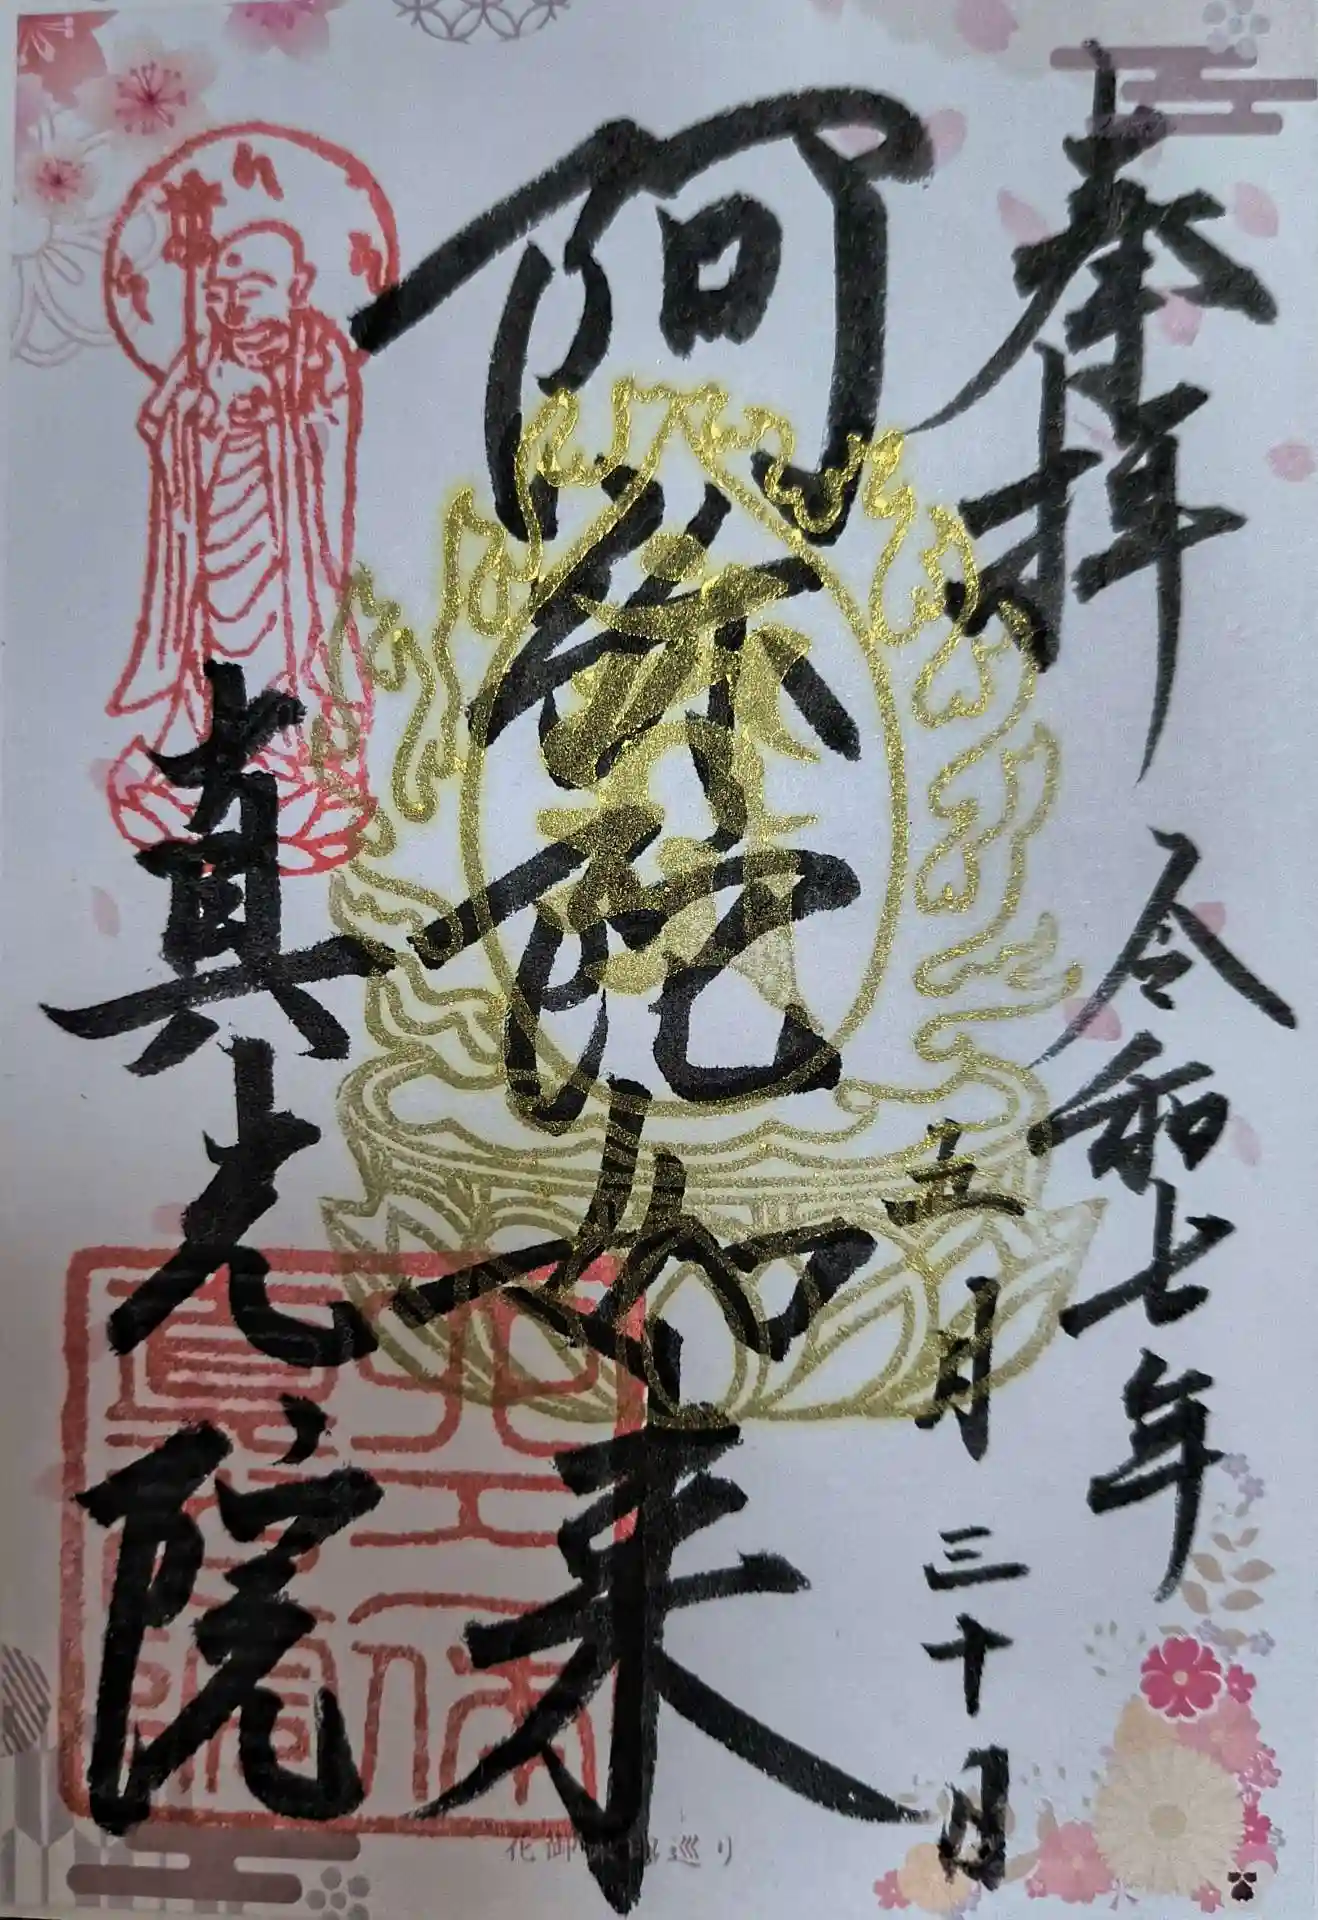 奉拝
令和七年
五月三十日
阿弥陀如来
真光院
花御朱印巡り